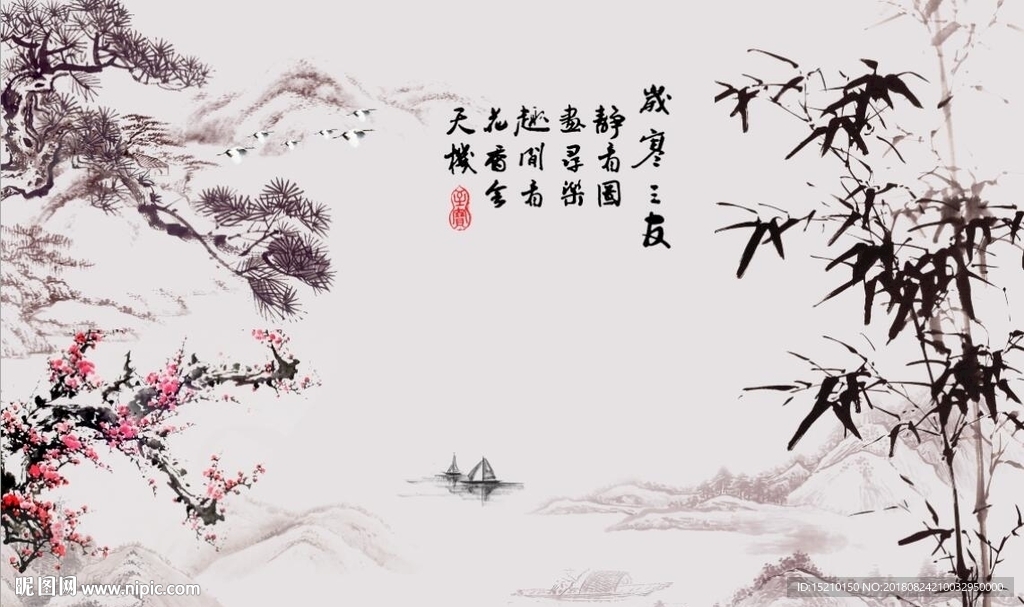 歲寒三友
靜看圖
畫尋樂
趣閒看
花香會
天機
昵图网 www.nipic.com
ID:15210150 NO:20180824210032950000